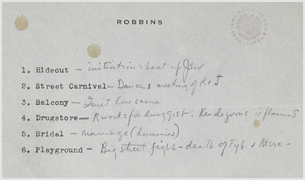 ROBBINS
1. Hideout — initiation: beat up Jew
2. Street Carnival — Dance & meeting of R + J
3. Balcony — Quiet love scene
4. Drugstore — R works for druggist: Rendezvous is planned
5. Bridal — marriage (dummies)
6. Playground — Big street fight - death of Tyb & Merc -